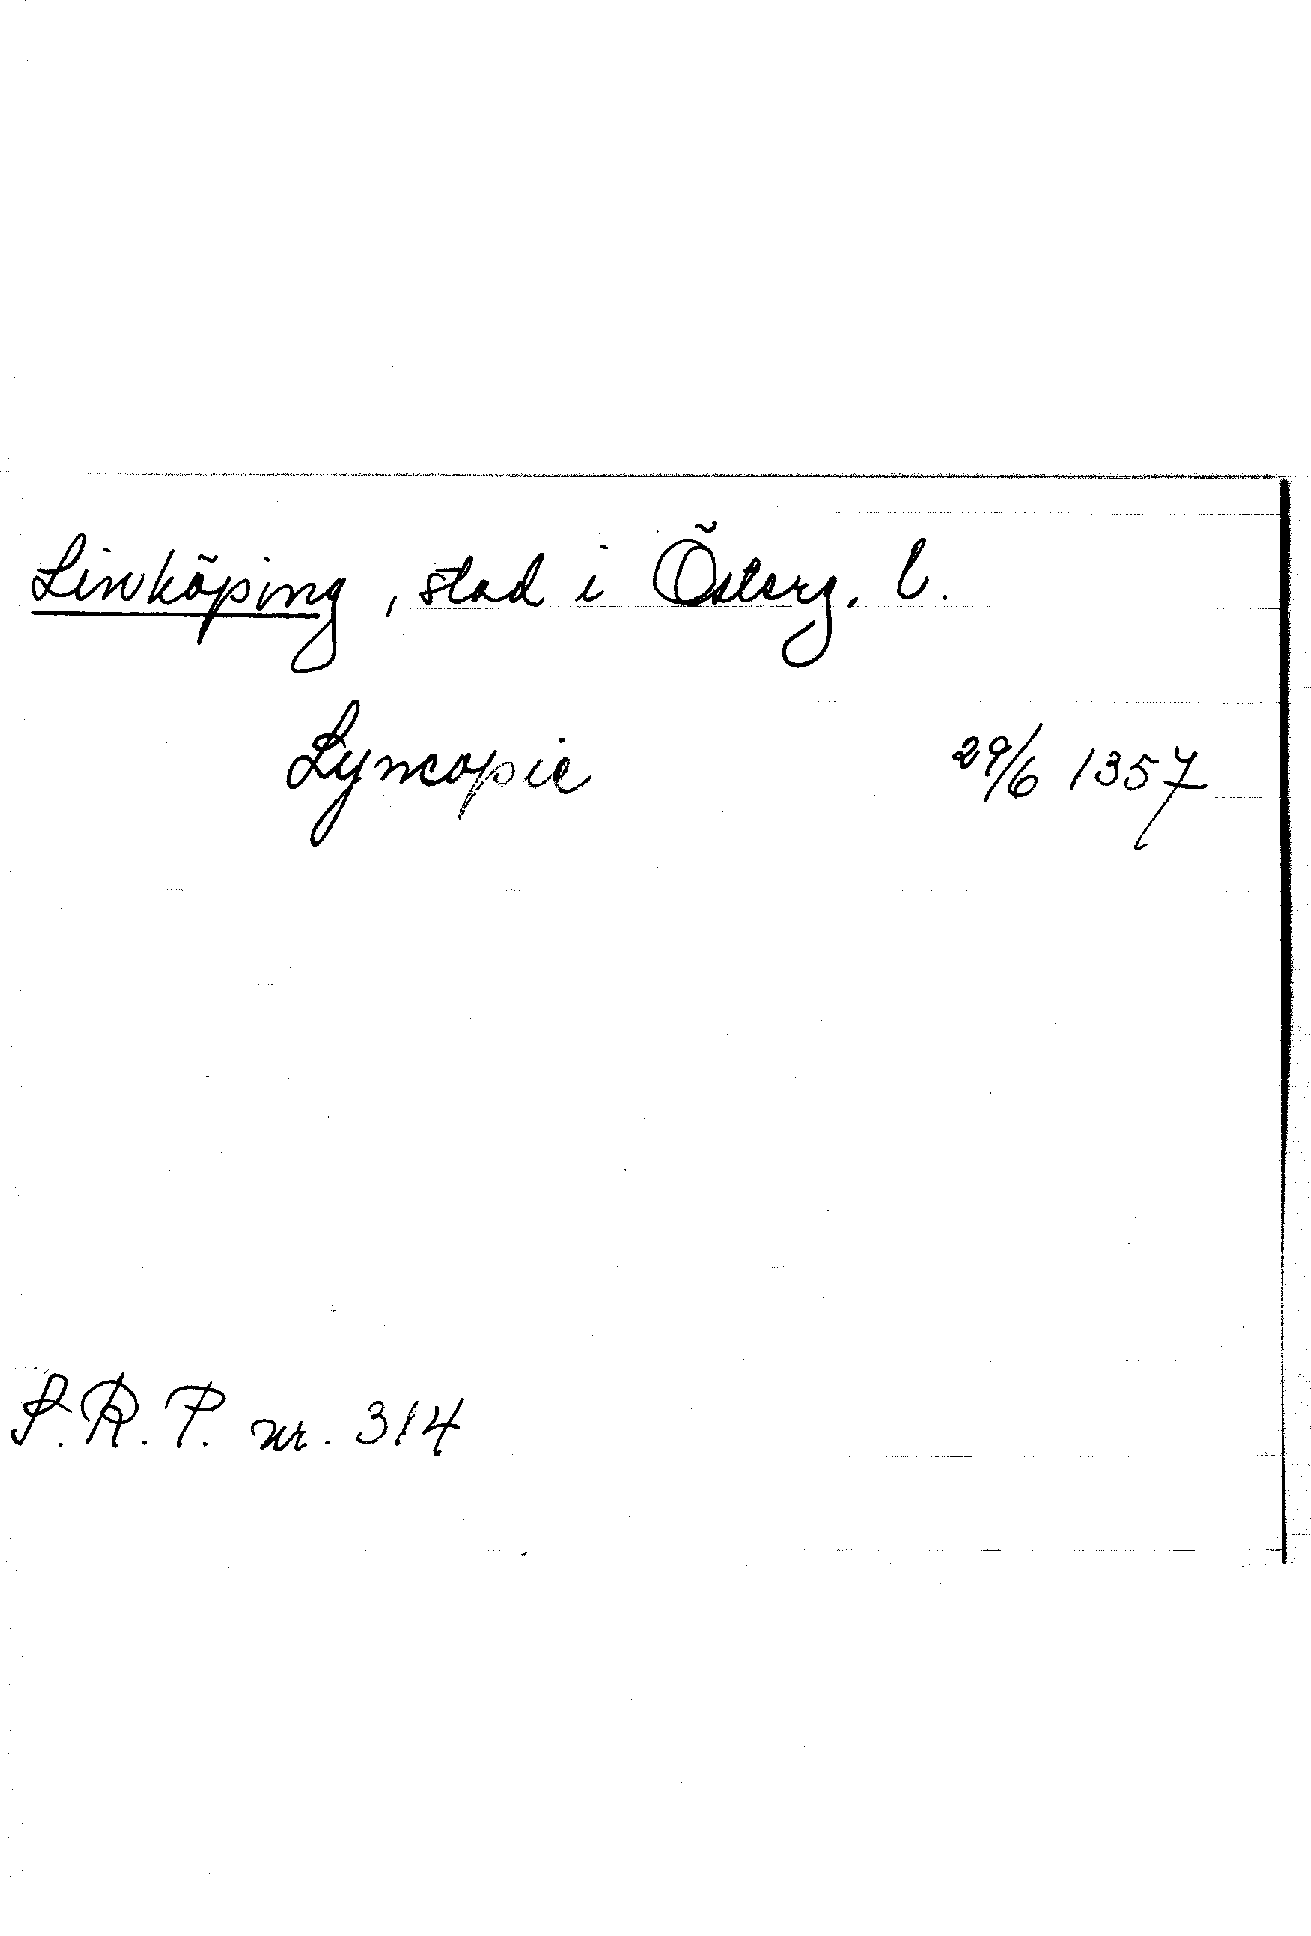 Linköping, stad i Österg. l.
Lyncopie 29/6 1357
S.R.P. nr. 314